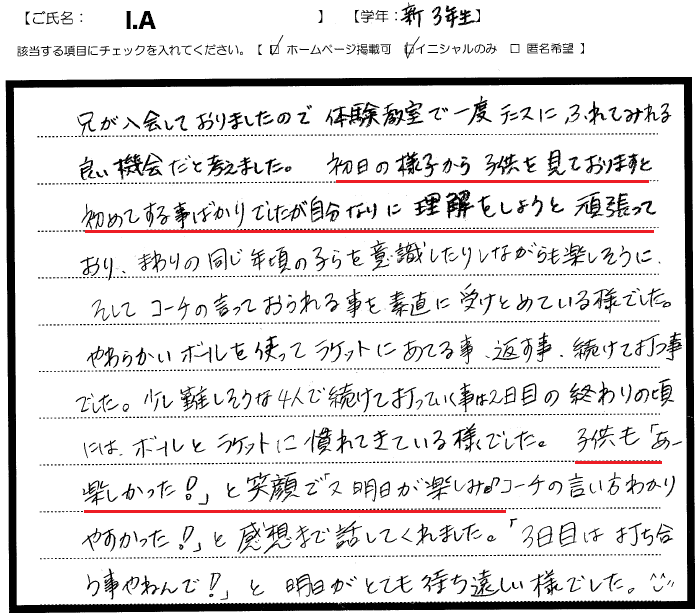 【ご氏名： I.A 】 【学年：新3年生】
該当する項目にチェックを入れてください。【 ☑ ホームページ掲載可 ☑ イニシャルのみ □ 匿名希望 】
兄が入会しておりましたので 体験教室で一度テニスに、ふれてみれる
良い機会だと考えました。 初日の様子から子供を見ておりますと
初めてする事ばかりでしたが自分なりに理解をしようと頑張って
おり、まわりの同じ年頃の子らを意識したりしながらも楽しそうに、
そして コーチの言っておられる事を素直に受けとめている様でした。
やわらかいボールを使ってラケットにあてる事、返す事、続けて打つ事
でした。少し難しそうな4人で続けて打っていく事は2日目の終わりの頃
には、ボールとラケットに慣れてきている様でした。 子供も「あー
楽しかった！」と笑顔で「又明日が楽しみ♪コーチの言い方わかり
やすかった！」と感想まで話してくれました。「3日目は打ち合
う事やねんで！」と 明日がとても待ち遠しい様でした。